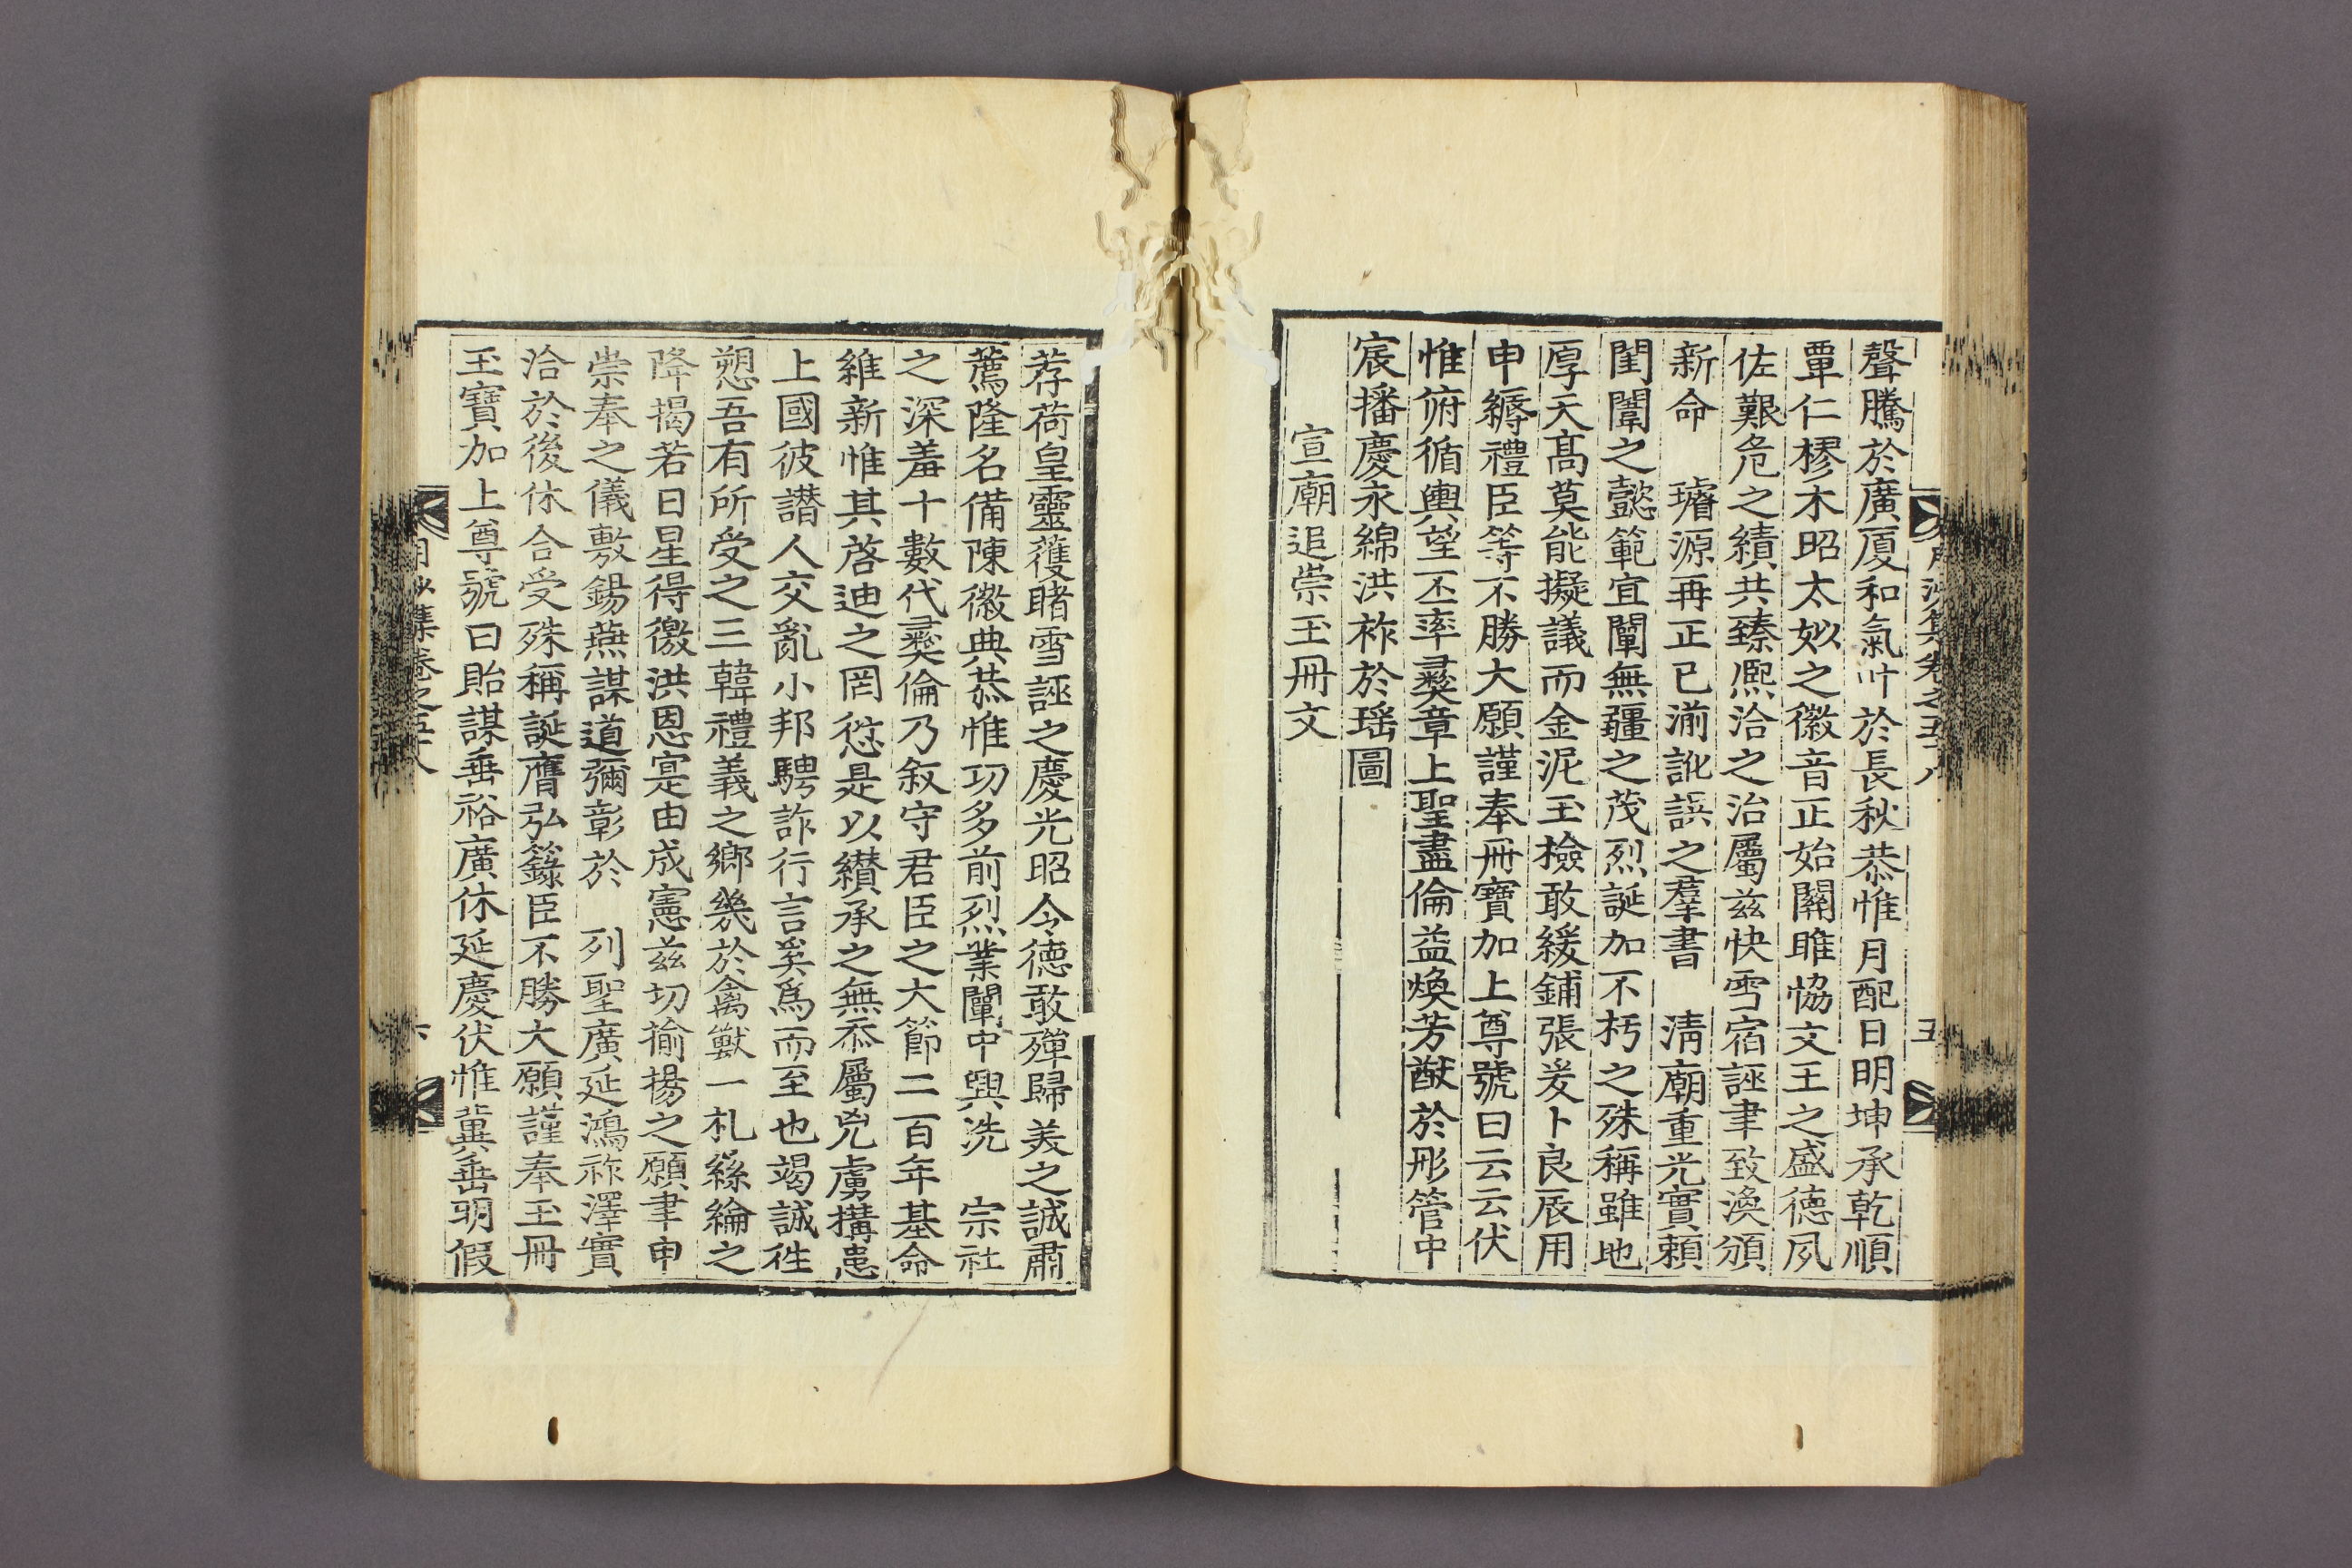 聲騰於廣厦和氣叶於長秋恭惟月配日明坤承乾順
覃仁樛木昭太姒之徽音正始關雎恊文王之盛德夙
佐艱危之績共臻熈洽之治屬兹快雪宿誣聿致渙頒
新命 璿源再正已湔訛誤之羣書 淸廟重光實賴
閨闈之懿範宜闡無疆之茂烈誕加不朽之殊稱雖地
厚天髙莫能擬議而金泥玉檢敢緩鋪張爰卜良辰用
申縟禮臣等不勝大願謹奉冊寶加上尊號曰云云伏
惟俯循輿望丕率彛章上聖盡倫益煥芳猷於彤管中
宸播慶永綿洪祚於瑶圖
宣廟追崇玉冊文
荐荷皇靈獲睹雪誣之慶光昭令德敢殫歸美之誠肅
薦隆名備陳徽典恭惟功多前烈業闡中興洗 宗社
之深羞十數代彛倫乃叙守君臣之大節二百年基命
維新惟其啓迪之罔愆是以纉承之無忝屬兇虜搆患
上國彼譛人交亂小邦騁詐行言奚爲而至也竭誠徃
愬吾有所受之三韓禮義之鄕幾於禽獸一札絲綸之
降揭若日星得徼洪恩寔由成憲兹切揄揚之願聿申
崇奉之儀敷錫燕謀道彌彰於 列聖廣延鴻祚澤實
洽於後休合受殊稱誕膺弘籙臣不勝大願謹奉玉冊
玉寶加上尊號曰貽謀垂裕廣休延慶伏惟冀垂明假
五
六